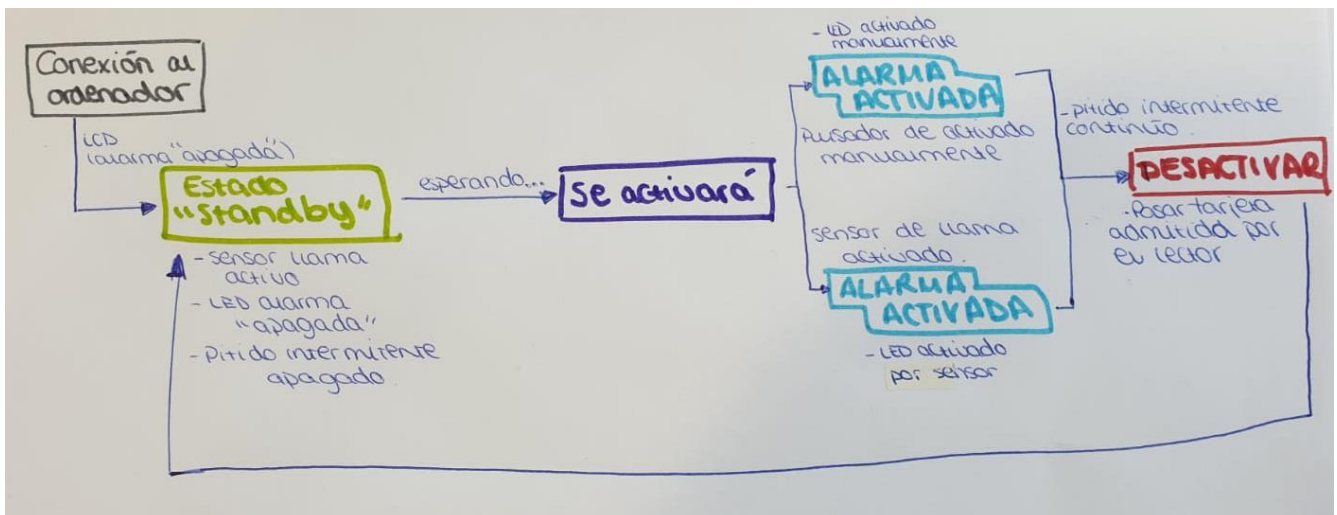 Conexión al
ordenador
LCD
(alarma "apagada")
Estado
"standby"
- sensor llama
activo
- LED alarma
"apagada"
- Pitido intermitente
apagado.
esperando...
Se activará
- LED activado
manualmente
ALARMA
ACTIVADA
Pulsador de activado
manualmente
sensor de llama
activado.
ALARMA
ACTIVADA
- LED activado
por sensor
- pitido intermitente
continuo.
DESACTIVAR
- Pasar tarjeta
admitida por
el lector